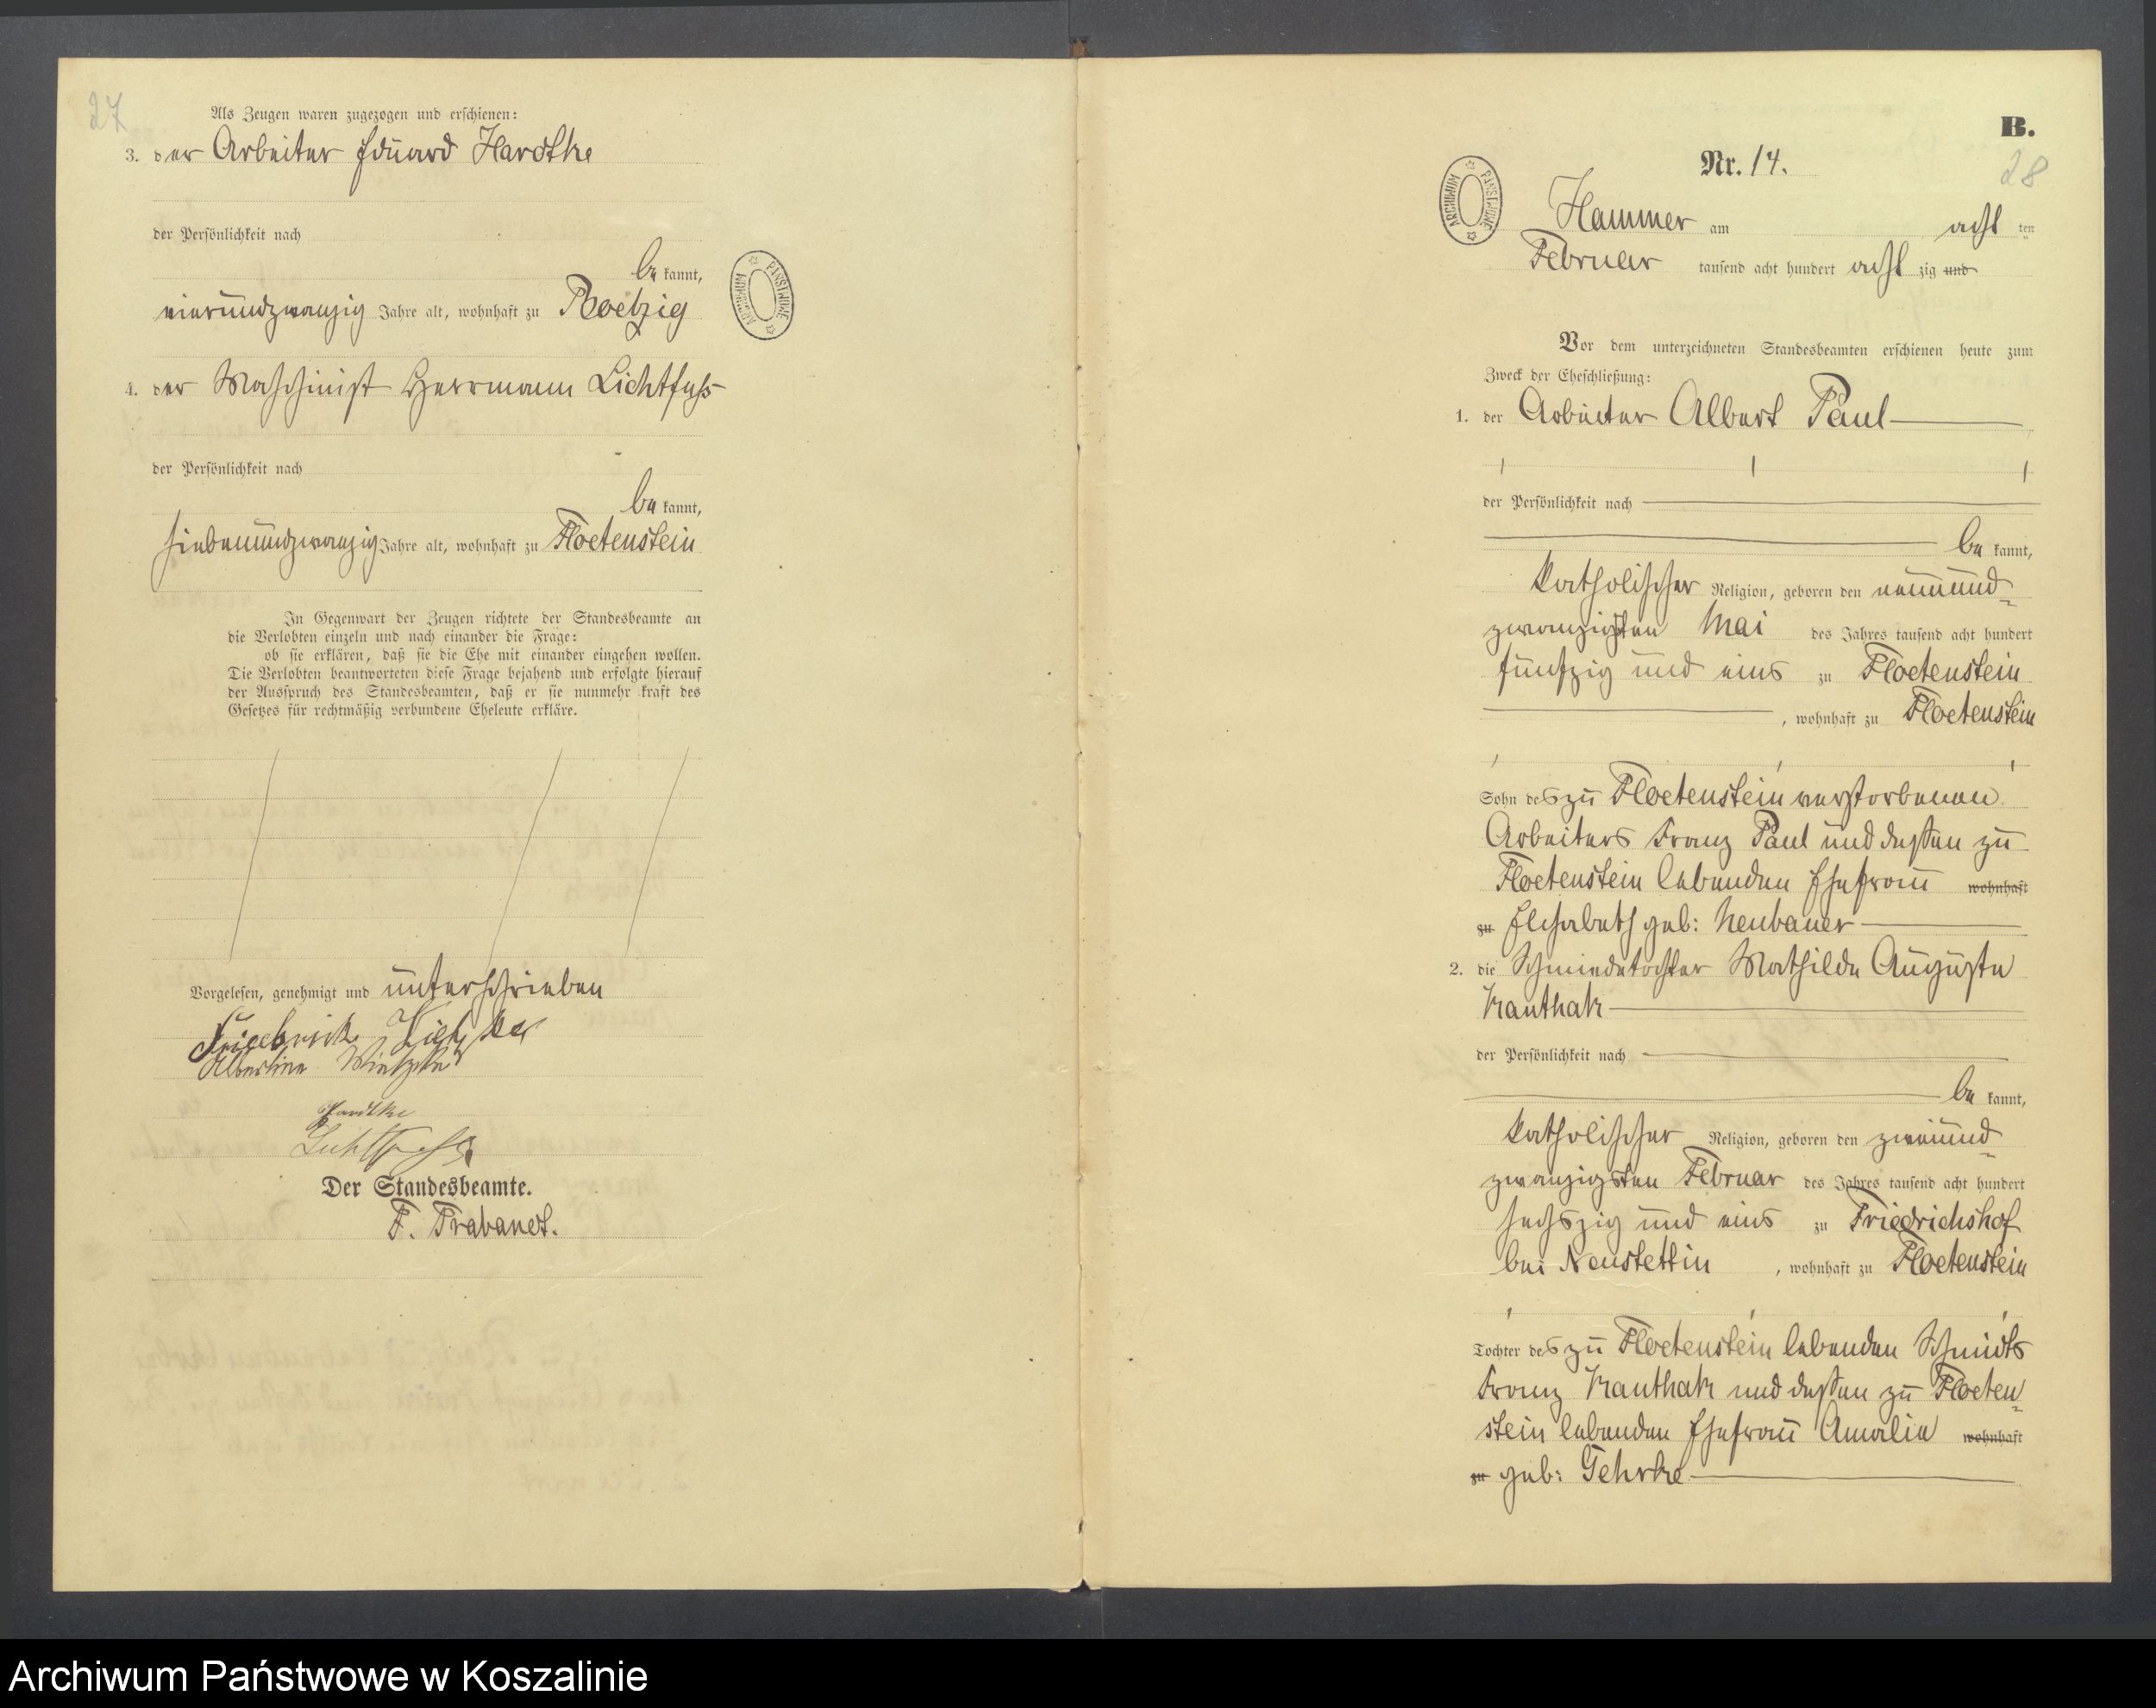 27
Als Zeugen waren zugezogen und erschienen:
3. der Arbeiter Eduard Hardtke
der Persönlichkeit nach
be kannt,
vierundzwanzig Jahre alt, wohnhaft zu Ploetzig
4. der Maschinist Herrmann Lichtfuss
der Persönlichkeit nach
be kannt,
siebenundzwanzig Jahre alt, wohnhaft zu Floetenstein
In Gegenwart der Zeugen richtete der Standesbeamte an
die Verlobten einzeln und nach einander die Frage:
ob sie erklären, daß sie die Ehe mit einander eingehen wollen.
Die Verlobten beantworteten diese Frage bejahend und erfolgte hierauf
der Ausspruch des Standesbeamten, daß er sie nunmehr kraft des
Gesetzes für rechtmäßig verbundene Eheleute erkläre.
Vorgelesen, genehmigt und unterschrieben
Friedrich
Albertine Wietzke
Hardtke
Lichtfuss
Der Standesbeamte.
F. Trabandt.
ARCHIWUM PAŃSTWOWE
B.
Nr. 14.
28
ARCHIWUM PAŃSTWOWE
Hammer am acht ten
Februar tausend acht hundert acht zig und
Vor dem unterzeichneten Standesbeamten erschienen heute zum
Zweck der Eheschließung:
1. der Arbeiter Albert Paul
der Persönlichkeit nach
be kannt,
katholischer Religion, geboren den neunund-
zwanzigsten Mai des Jahres tausend acht hundert
fünfzig und eins zu Floetenstein
, wohnhaft zu Floetenstein
Sohn des zu Floetenstein verstorbenen
Arbeiters Franz Paul und dessen zu
Floetenstein lebenden Ehefrau wohnhaft
zu Elisabeth geb: Neubauer
2. die Schmiedetochter Mathilde Auguste
Kanthak
der Persönlichkeit nach
be kannt,
katholischer Religion, geboren den zweiund-
zwanzigsten Februar des Jahres tausend acht hundert
sechszig und eins zu Friedrichshof
bei Neustettin , wohnhaft zu Floetenstein
Tochter des zu Floetenstein lebenden Schmidts
Franz Kanthak und dessen zu Floeten-
stein lebenden Ehefrau Amalie wohnhaft
zu geb: Gehrke
Archiwum Państwowe w Koszalinie